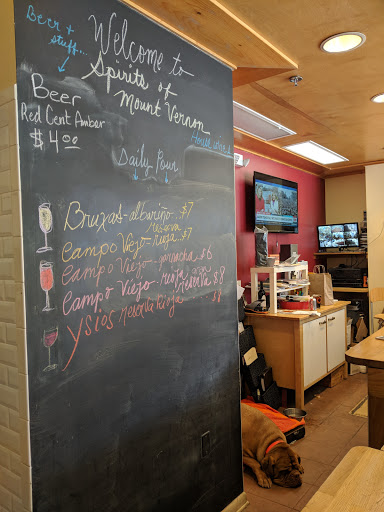 Beer +
stuff...
Welcome to
Spirits of
Mount Vernon
Beer
Red Cent Amber
$4.00
House wines
Daily Pour
Bruxas - albariño $7
Campo Viejo - reserva rioja $7
Campo Viejo - garnacha $6
Campo Viejo - rioja reserva $8
Ysios reserva rioja $8